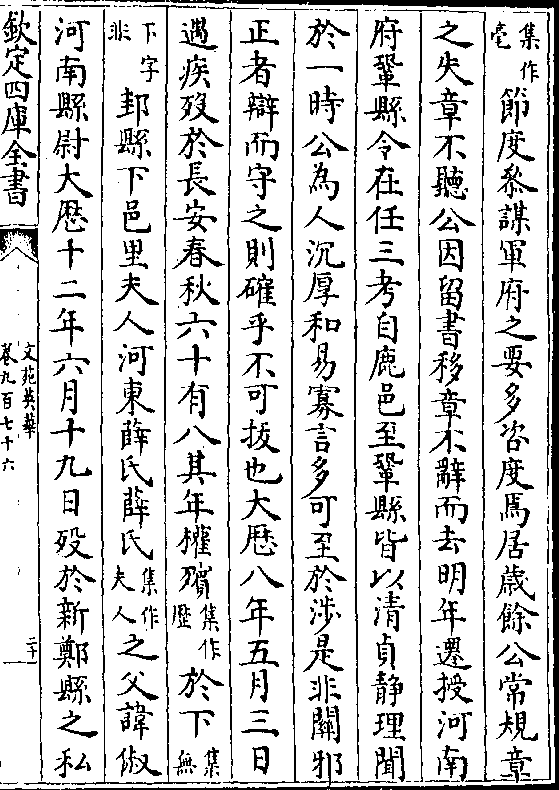 集作亳節度參謀軍府之要多咨度焉居歲餘公常規章
之失章不聽公因留書移章不辭而去明年遷授河南
府鞏縣令在任三考自鹿邑至鞏縣皆以清貞靜理聞
於一時公為人沉厚和易寡言多可至於涉是非關邪
正者辯而守之則確乎不可拔也大歷八年五月三日
遇疾歿於長安春秋六十有八其年權殯集作歷於下集無
下字非邽縣下邑里夫人河東薛氏薛氏集作夫人之父諱俶
河南縣尉大歷十二年六月十九日歿於新鄭縣之私
欽定四庫全書
文苑英華
卷九百七十六
二十